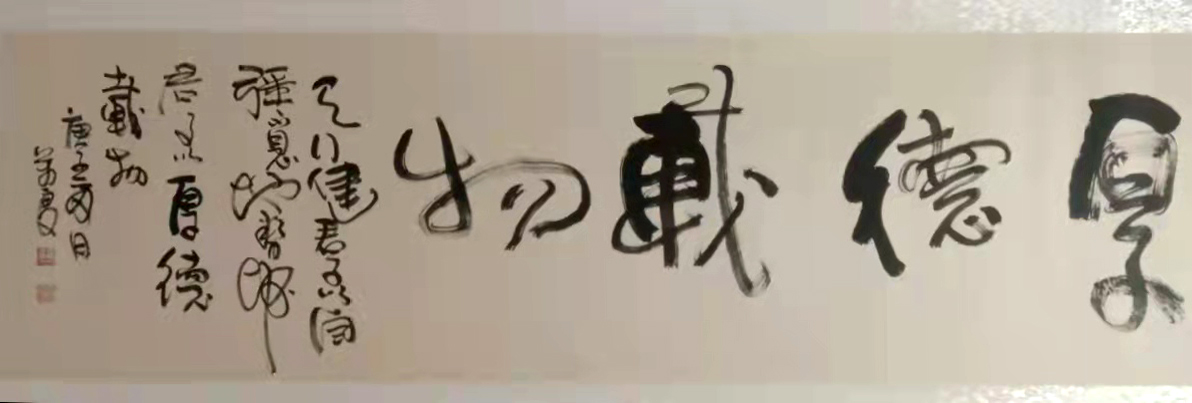 厚德載物
天行健君子以自
強不息地勢坤
君子以厚德
載物
庚子夏日